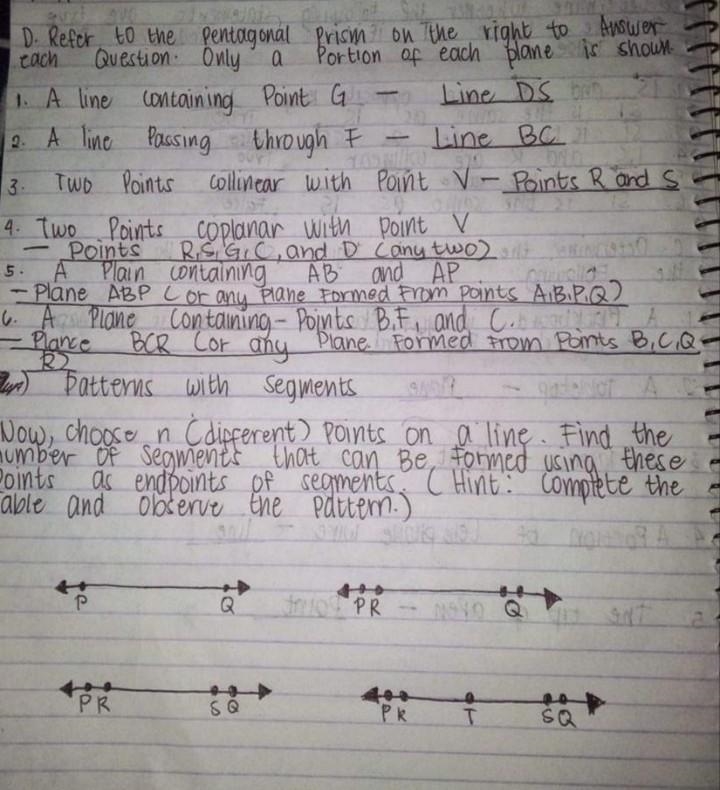 D. Refer to the Pentagonal Prism on the right to Answer
each Question. Only a Portion of each plane is shown
1. A line containing Point G — Line DS
2. A line Passing through F — Line BC
3. Two Points collinear with Point V — Points R and S
4. Two Points coplanar with point V
— Points R,S,G,C, and D (any two)
5. A Plain containing AB and AP
— Plane ABP (or any plane Formed From points A,B,P,Q)
6. A Plane Containing - Points B,F, and C.
— Plance BCR (or any Plane Formed From Points B,C,Q
R)
Patterns with Segments
Now, choose n (different) Points on a line. Find the
number of segments that can Be formed using these
Points as endpoints of segments. (Hint: Complete the
table and observe the pattern.)
P Q
P R Q
P R S Q
P R T S Q